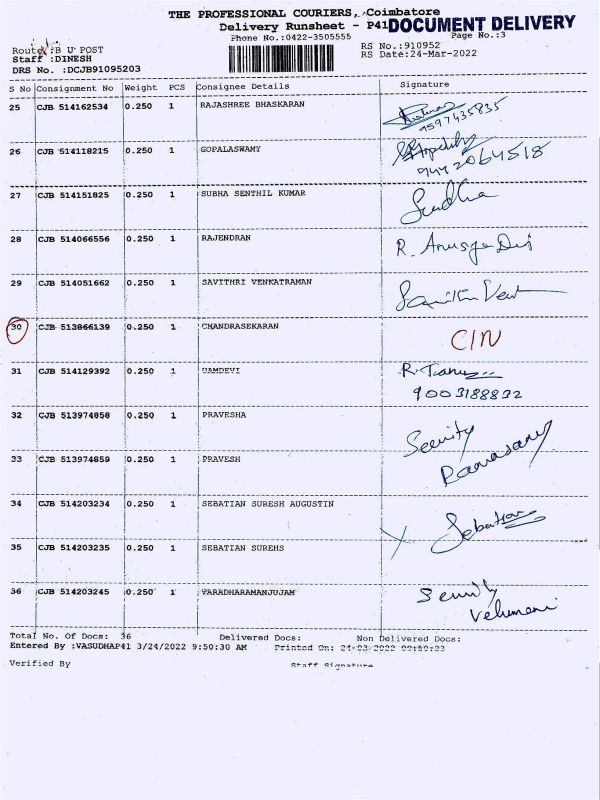 THE PROFESSIONAL COURIERS, Coimbatore
Delivery Runsheet - P41 DOCUMENT DELIVERY
Phone No.:0422-3505555 Page No.:3
Route :B U' POST RS No.:910952
Staff :DINESH RS Date:24-Mar-2022
DRS No. :DCJB91095203
S No Consignment No Weight PCS Consignee Details Signature
25 CJB 514162534 0.250 1 RAJASHREE BHASKARAN
9597435835
26 CJB 514118215 0.250 1 GOPALASWAMY
9442064518
27 CJB 514151825 0.250 1 SUBHA SENTHIL KUMAR Sudha
28 CJB 514066556 0.250 1 RAJENDRAN R. Anusya Devi
29 CJB 514051662 0.250 1 SAVITHRI VENKATRAMAN Savithri Venk
30 CJB 513866139 0.250 1 CHANDRASEKARAN C/N
31 CJB 514129392 0.250 1 UAMDEVI R.
9003188832
32 CJB 513974858 0.250 1 PRAVESHA Security
33 CJB 513974859 0.250 1 PRAVESH Ramasamy
34 CJB 514203234 0.250 1 SEBATIAN SURESH AUGUSTIN Sebatian
35 CJB 514203235 0.250 1 SEBATIAN SUREHS
36 CJB 514203245 0.250 1 VARADHARAMANJUJAM Security
Velumani
Total No. Of Docs: 36 Delivered Docs: Non Delivered Docs:
Entered By :VASUDHAP41 3/24/2022 9:50:30 AM Printed On: 24-03-2022 09:50:33
Verified By Staff Signature